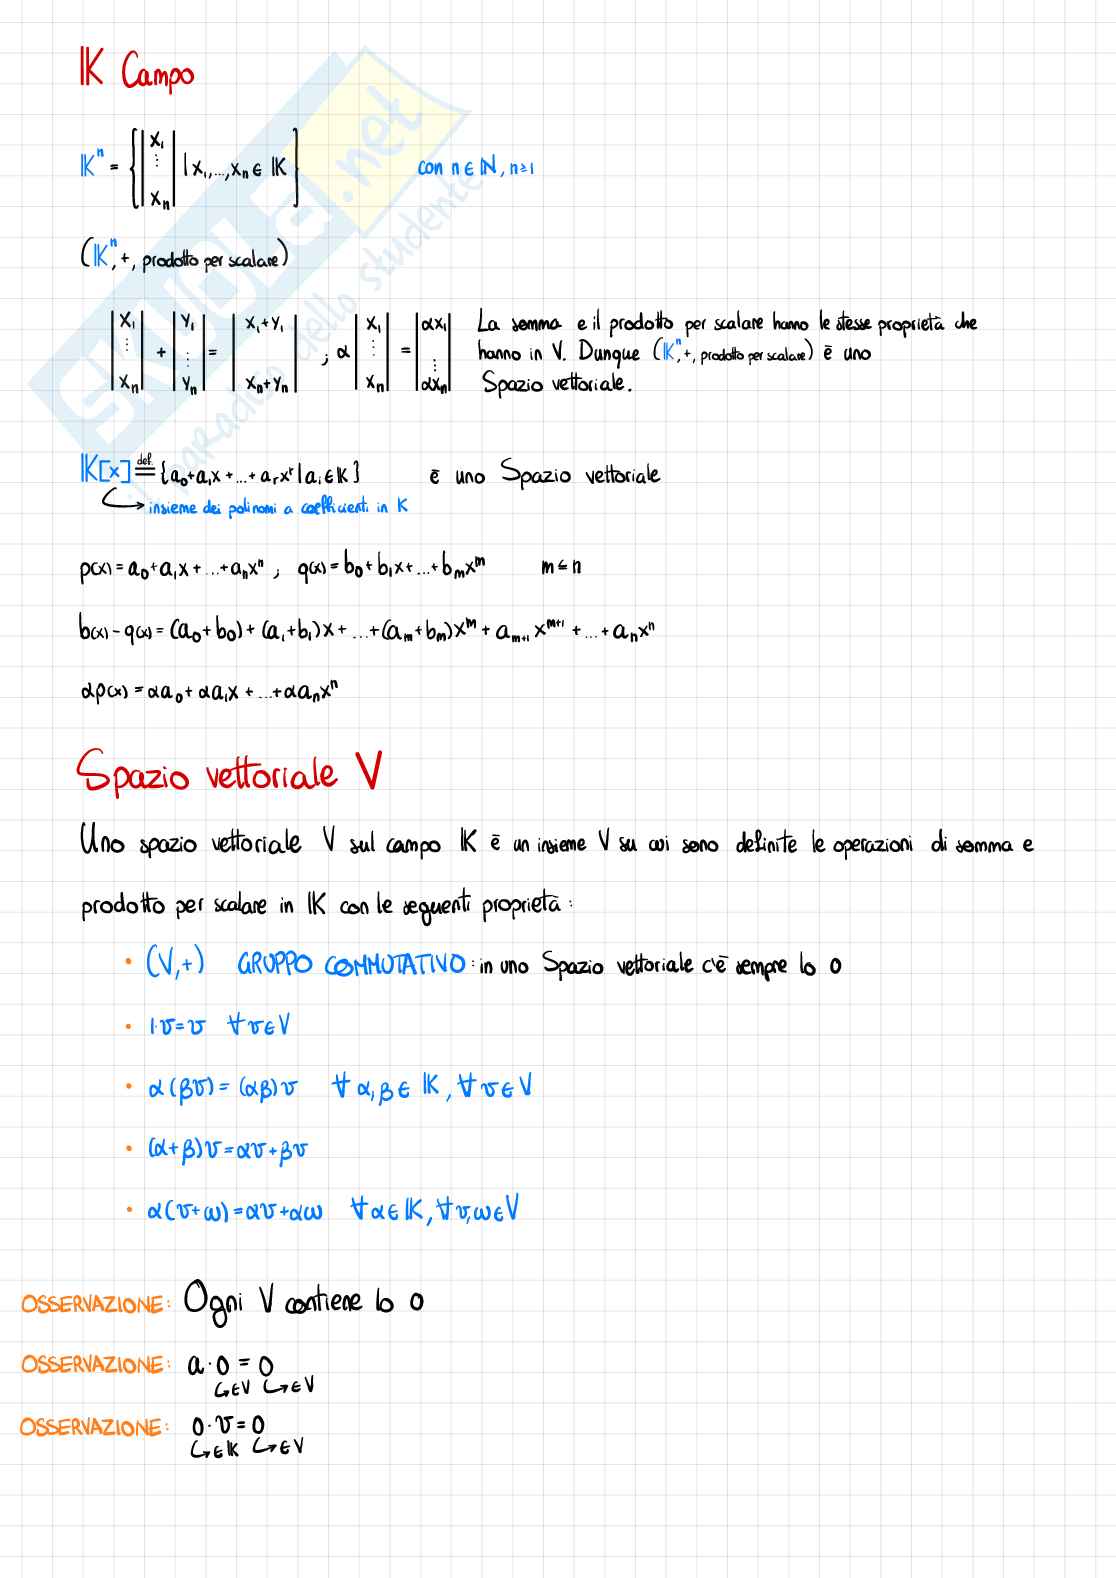 𝕂 Campo
𝕂ⁿ = { |x₁ ⋮ xₙ| | x₁,...,xₙ ∈ 𝕂 } con n ∈ ℕ, n≥1
(𝕂ⁿ, +, prodotto per scalare)
|x₁ ⋮ xₙ| + |y₁ ⋮ yₙ| = |x₁+y₁ xₙ+yₙ| ; α |x₁ ⋮ xₙ| = |αx₁ ⋮ αxₙ| La somma e il prodotto per scalare hanno le stesse proprietà che
hanno in V. Dunque (𝕂ⁿ, +, prodotto per scalare) è uno
Spazio vettoriale.
𝕂[x] ≝ {a₀+a₁x+...+aᵣxʳ | aᵢ ∈ 𝕂} è uno Spazio vettoriale
↪ insieme dei polinomi a coefficienti in K
p(x) = a₀+a₁x+...+aₙxⁿ ; q(x) = b₀+b₁x+...+bₘxᵐ m≤n
b(x) - q(x) = (a₀+b₀) + (a₁+b₁)x + ...+(aₘ+bₘ)xᵐ + aₘ₊₁xᵐ⁺¹ + ... + aₙxⁿ
αp(x) = αa₀ + αa₁x + ...+αaₙxⁿ
Spazio vettoriale V
Uno spazio vettoriale V sul campo 𝕂 è un insieme V su cui sono definite le operazioni di somma e
prodotto per scalare in 𝕂 con le seguenti proprietà:
• (V,+) GRUPPO COMMUTATIVO: in uno Spazio vettoriale c'è sempre lo 0
• 1·v=v ∀v∈V
• α(βv) = (αβ)v ∀ α,β ∈ 𝕂, ∀ v ∈ V
• (α+β)v=αv+βv
• α(v+ω)=αv+αω ∀α∈𝕂, ∀v,ω∈V
OSSERVAZIONE: Ogni V contiene lo 0
OSSERVAZIONE: a·0 = 0
↪∈V ↪∈V
OSSERVAZIONE: 0·v=0
↪∈𝕂 ↪∈V
SKUOLA.net
il paradiso dello studente